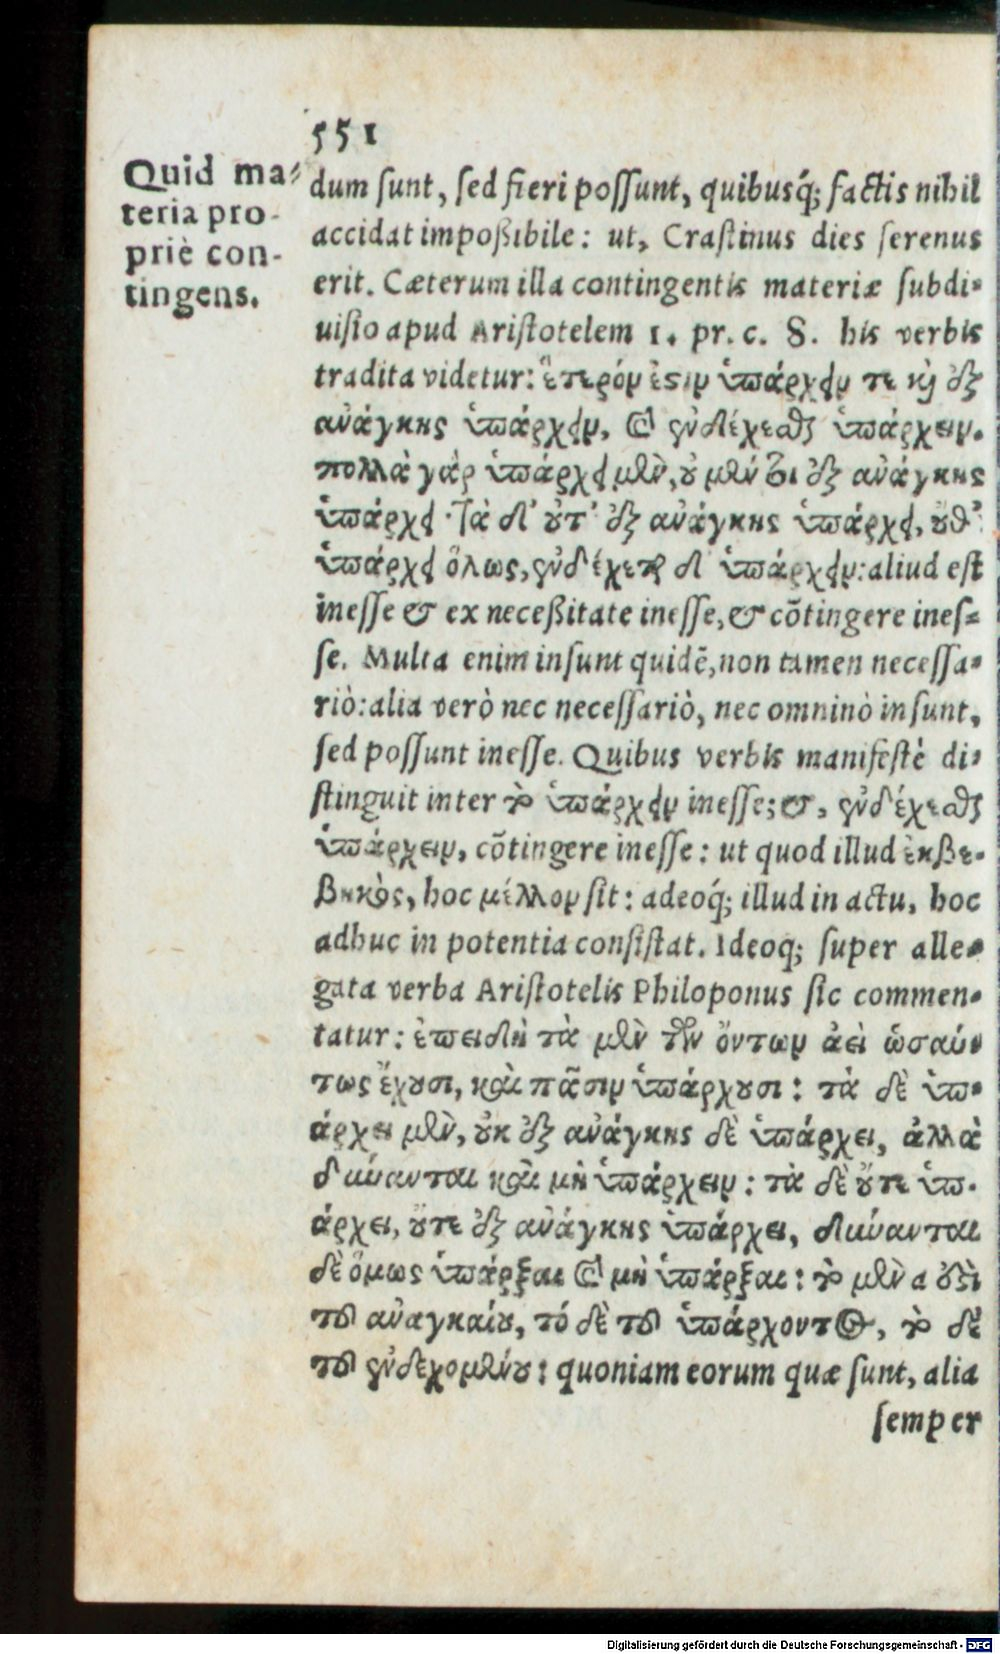 551
Quid ma-
teria pro-
priè con-
tingens.
dum ſunt, ſed fieri poſſunt, quibusq́; factis nihil
accidat impoßibile: ut, Craſtinus dies ſerenus
erit. Cæterum illa contingentis materiæ ſubdi-
uiſio apud Ariſtotelem 1. pr. c. 8. his verbis
tradita videtur: ἕτερόν ἐστιν ὑπάρχειν τε καὶ ἐξ
ἀνάγκης ὑπάρχειν, καὶ ἐνδέχεσθαι ὑπάρχειν.
πολλὰ γὰρ ὑπάρχει μὲν, οὐ μέντοι ἐξ ἀνάγκης
ὑπάρχει· τὰ δ' οὔτ' ἐξ ἀνάγκης ὑπάρχει, οὔθ'
ὑπάρχει ὅλως, ἐνδέχεται δ' ὑπάρχειν: aliud eſt
ineſſe & ex neceßitate ineſſe, & cõtingere ineſ-
ſe. Multa enim inſunt quidẽ, non tamen neceſſa-
riò: alia verò nec neceſſariò, nec omninò inſunt,
ſed poſſunt ineſſe. Quibus verbis manifeſtè di-
ſtinguit inter τὸ ὑπάρχειν ineſſe; &, ἐνδέχεσθαι
ὑπάρχειν, cõtingere ineſſe: ut quod illud ἐκβε-
βηκὸς, hoc μέλλον ſit: adeoq́; illud in actu, hoc
adhuc in potentia conſiſtat. Ideoq; ſuper alle-
gata verba Ariſtotelis Philoponus ſic commen-
tatur: ἐπειδὴ τὰ μὲν τῶν ὄντων ἀεὶ ὡσαύ-
τως ἔχουσι, καὶ πᾶσιν ὑπάρχουσι: τὰ δὲ ὑπ-
άρχει μὲν, οὐκ ἐξ ἀνάγκης δὲ ὑπάρχει, ἀλλὰ
δύνανται καὶ μὴ ὑπάρχειν: τὰ δὲ οὔτε ὑπ-
άρχει, οὔτε ἐξ ἀνάγκης ὑπάρχει, δύνανται
δὲ ὅμως ὑπάρξαι καὶ μὴ ὑπάρξαι: τὸ μὲν a ὅζι
τοῦ ἀναγκαίου, τό δὲ τοῦ ὑπάρχοντος, τὸ δὲ
τοῦ ἐνδεχομένου: quoniam eorum quæ ſunt, alia
ſemper
Digitalisierung gefördert durch die Deutsche Forschungsgemeinschaft - DFG